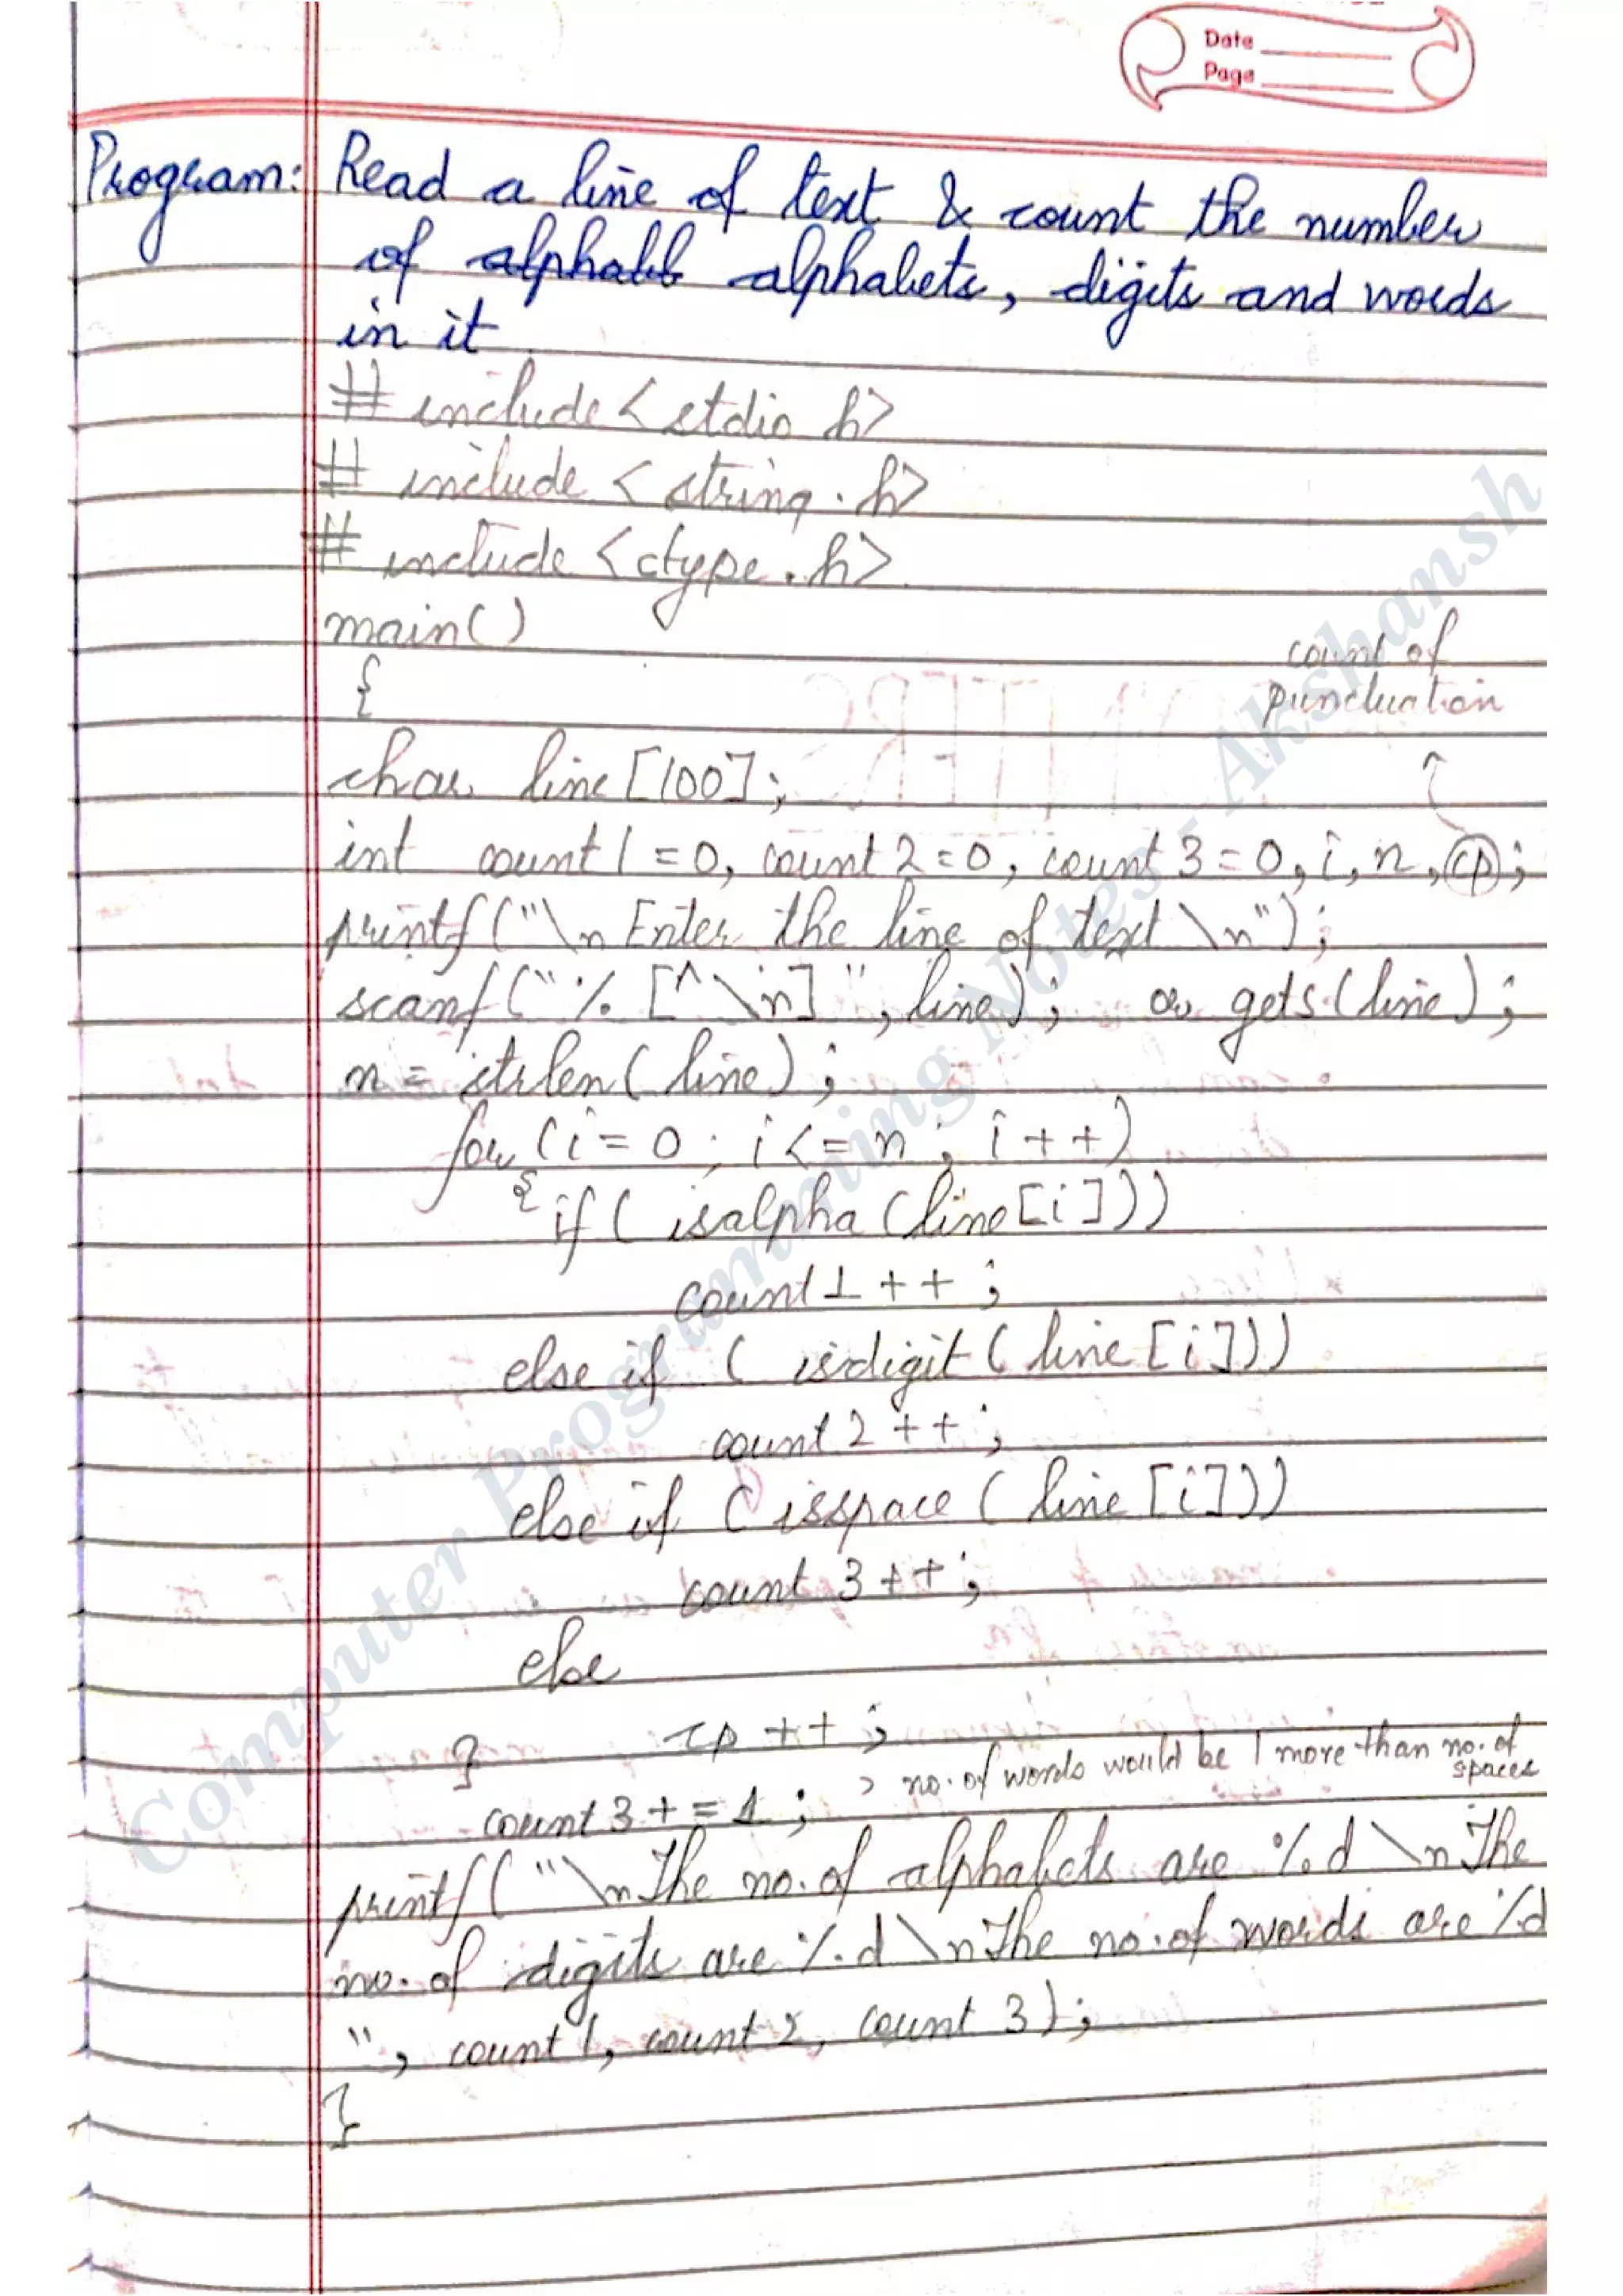 Date
Page
Program: Read a line of text & count the number
of alphabb alphabets, digits and words
in it
# include < stdio h>
# include < string.h>
# include <ctype.h>
main()
{
count of
punctuation
char line [100];
int count 1 = 0, count 2 = 0, count 3 = 0, i, n, cp;
printf ("\n Enter the line of text \n");
scanf ("% [^\n] ", line); or gets (line);
n = strlen( line) ;
for (i = 0 ; i <= n ; i ++)
{ if ( isalpha (line [i]))
count 1 ++ ;
else if ( isdigit ( line [i]))
count 2 ++ ;
else if ( isspace ( line [i]))
count 3 ++ ;
else
cp ++ ;
} > no. of words would be 1 more than no. of spaces
count 3 + = 1 ;
printf ( "\nThe no. of alphabets are %d \nThe
no. of digits are %d \nThe no. of words are %d
", count 1, count 2, count 3);
}
Computer Programming Notes - Akshansh